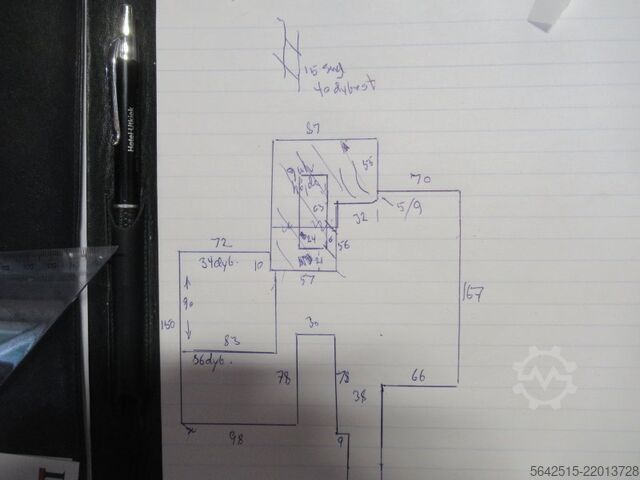 Hotel Utsikt
40 dybest
87
55
70
63
32
5/9
24
56
72
34dyb.
10
57
90
150
167
30
83
36dyb.
78
78
38
66
98
9
5642515-22013728